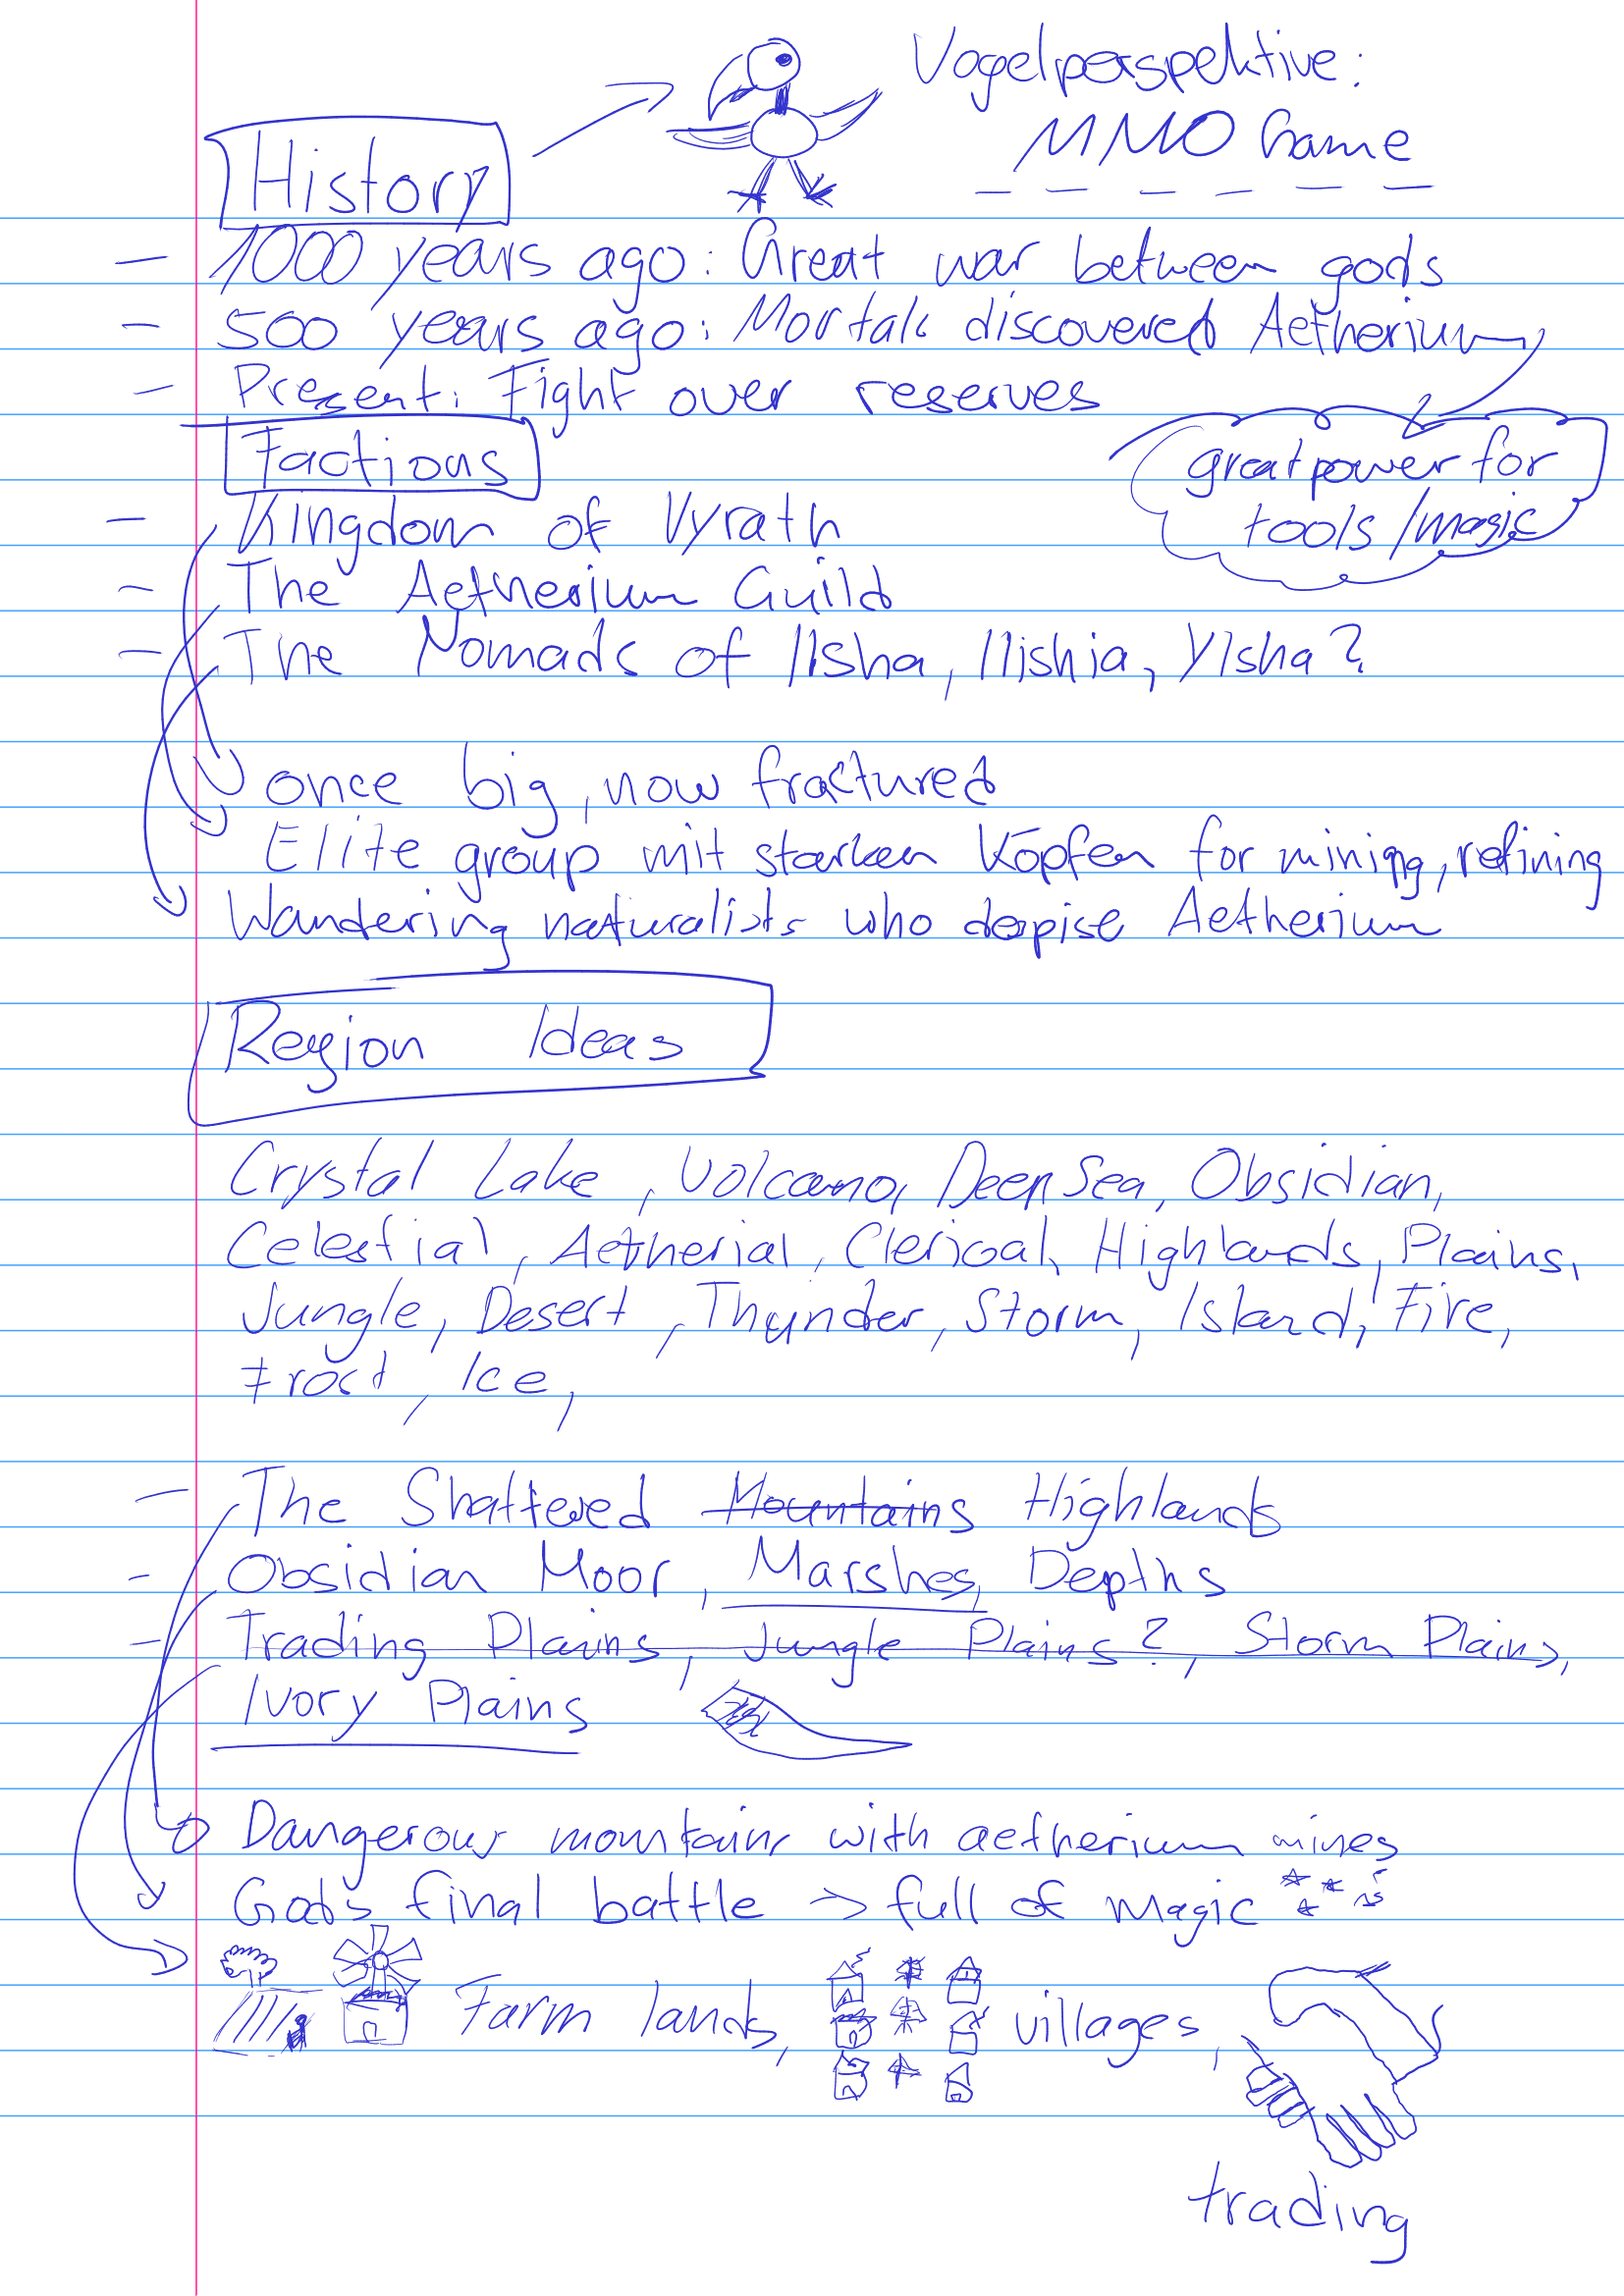 Vogelperspektive:
MMO Game
History
- 1000 years ago: Great war between gods
- 500 years ago: Mortals discovered Aetherium
- Present: Fight over reserves
great power for
tools/magic
Factions
- Kingdom of Vyrath
- The Aetherium Guild
- The Nomads of Ilsha, Ilishia, Ylsha?
once big, now fractured
Elite group mit starken Köpfen for mining, refining
Wandering naturalists who despise Aetherium
Region Ideas
Crystal Lake, Volcano, Deep Sea, Obsidian,
Celestial, Aetherial, Clerical, Highlands, Plains,
Jungle, Desert, Thunder, Storm, Island, Fire,
Frost, Ice,
- The Shattered Mountains Highlands
- Obsidian Moor, Marshes, Depths
- Trading Plains, Jungle Plains?, Storm Plains,
Ivory Plains
Dangerous mountains with aetherium mines
Gods final battle → full of magic
Farm lands, villages,
trading